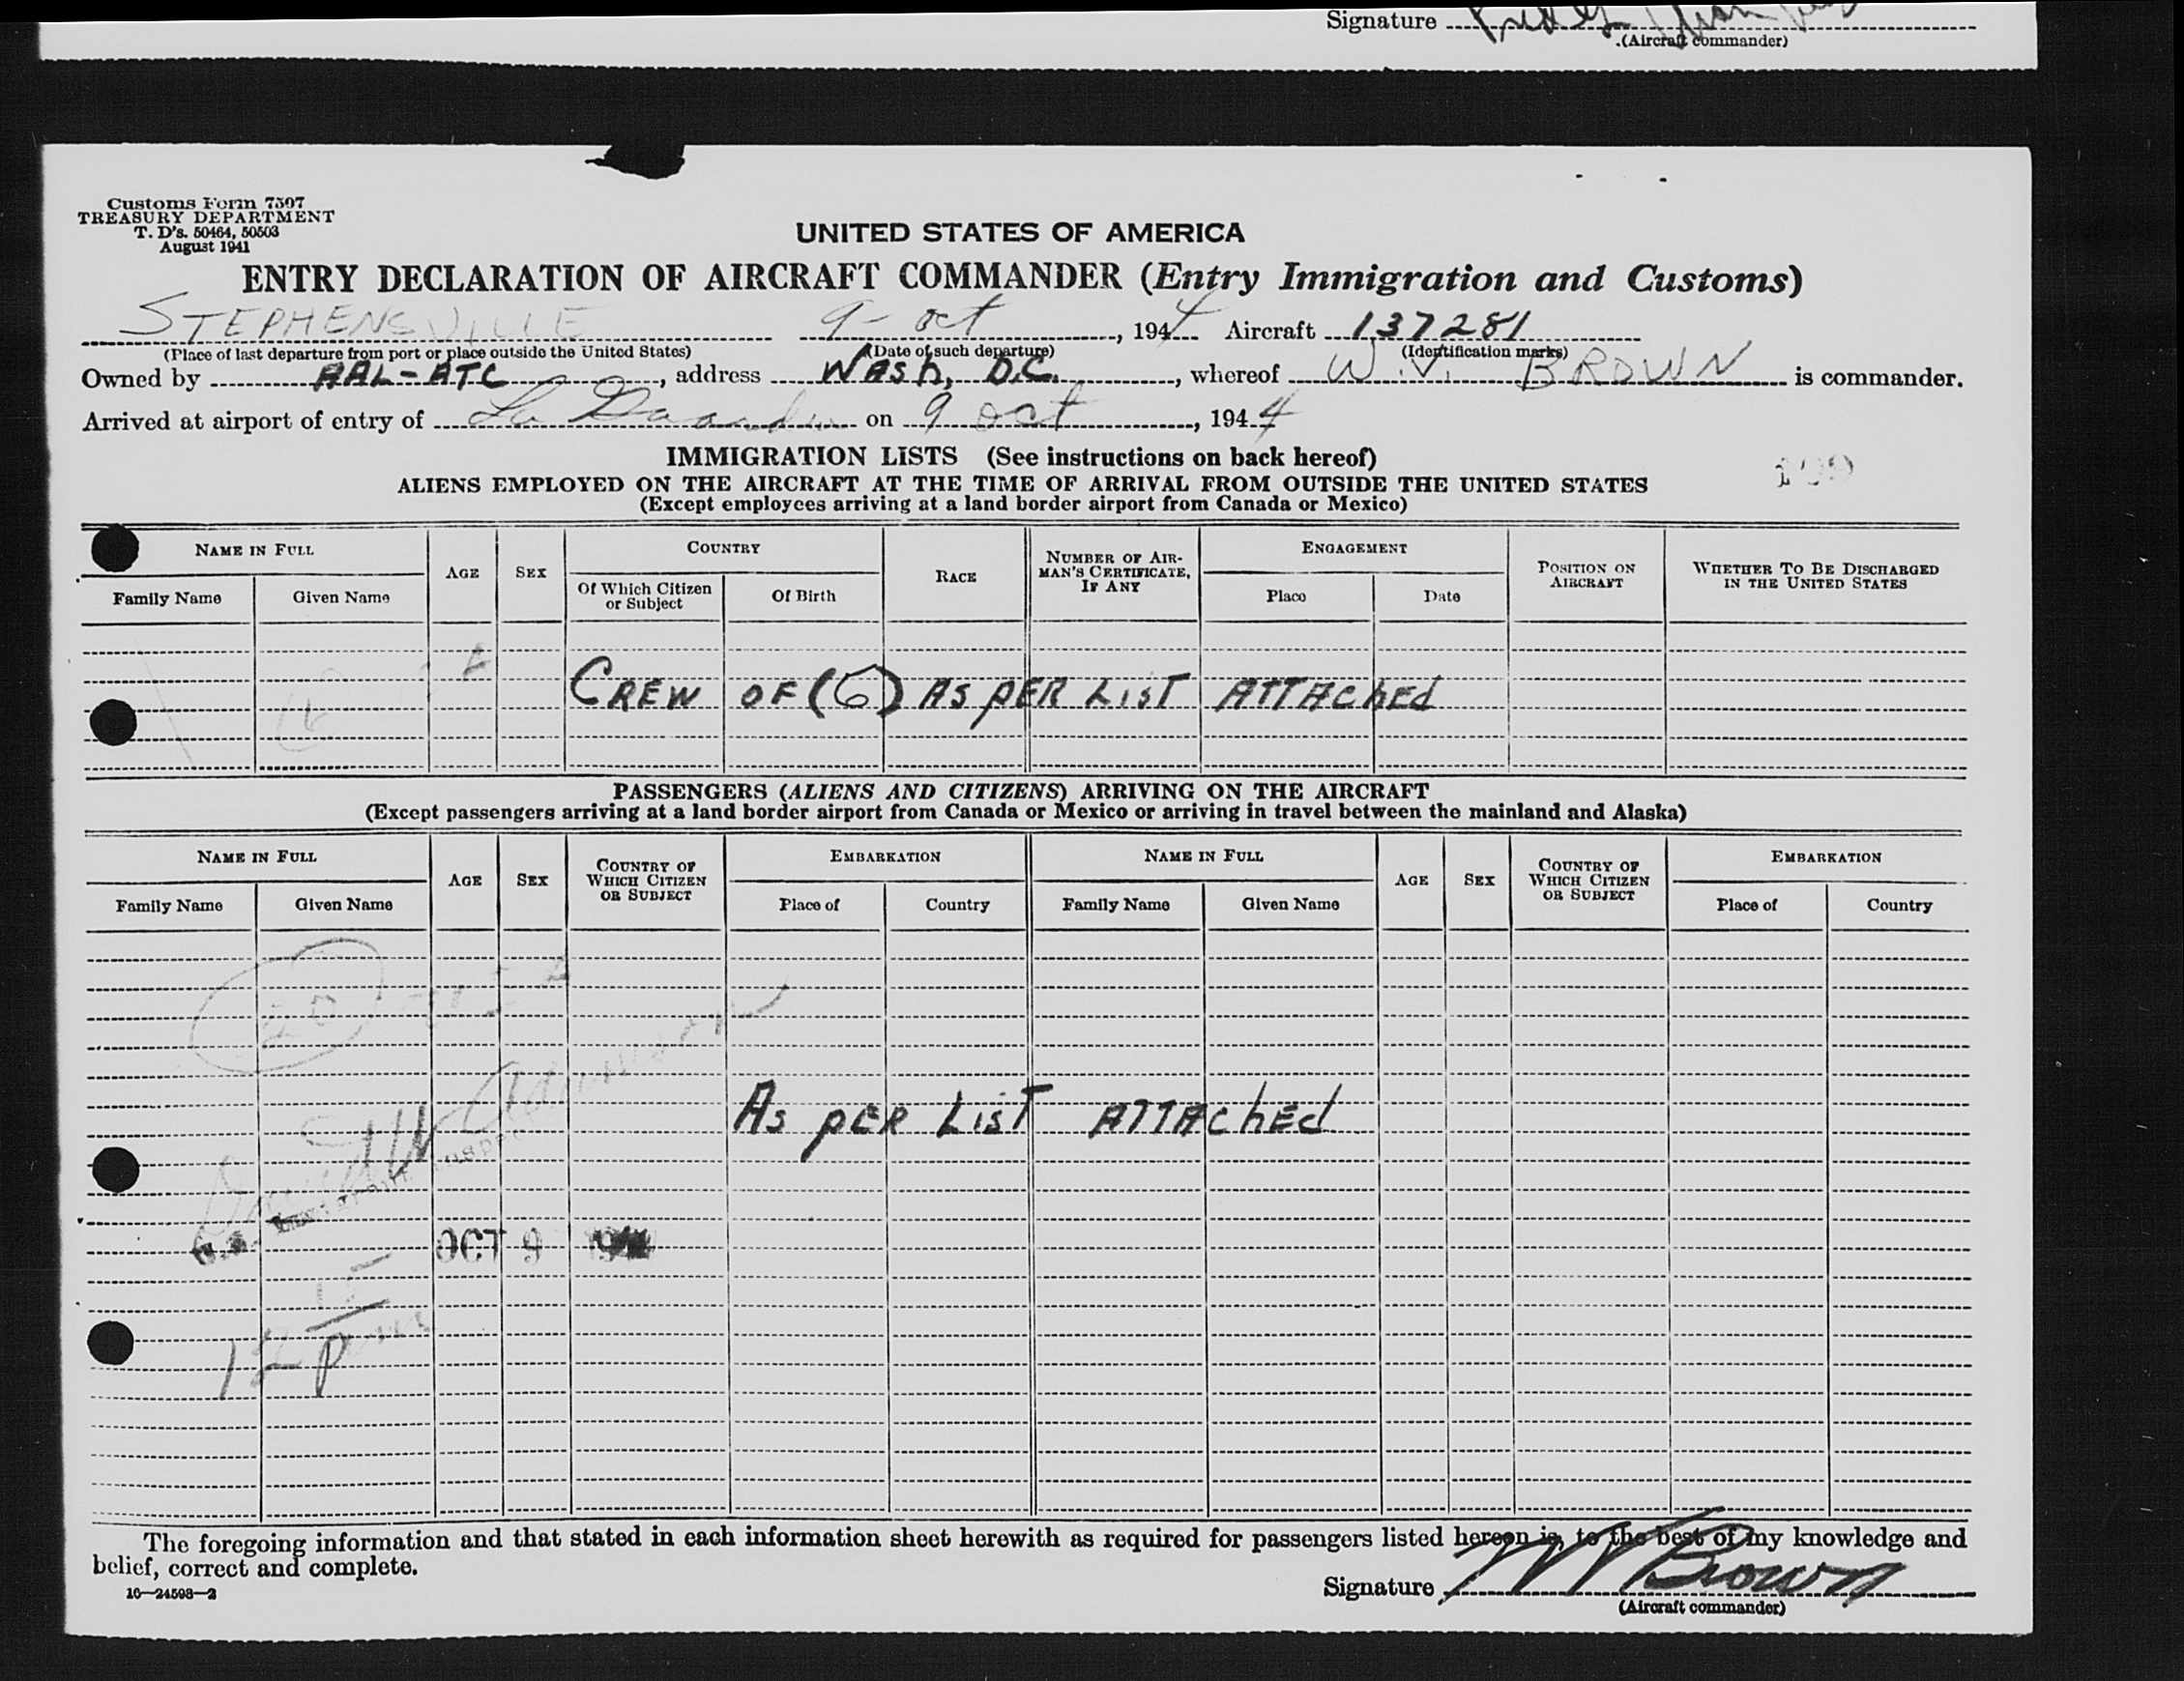 Signature
(Aircraft commander)
Customs Form 7507
TREASURY DEPARTMENT
T. D's. 50464, 50503
August 1941
UNITED STATES OF AMERICA
ENTRY DECLARATION OF AIRCRAFT COMMANDER (Entry Immigration and Customs)
STEPHENSVILLE 9 - oct , 1944 Aircraft 137281
(Place of last departure from port or place outside the United States) (Date of such departure) (Identification marks)
Owned by AAL-ATC , address WASh, D.C. , whereof W.V. BROWN is commander.
Arrived at airport of entry of La Guardia on 9 oct , 1944
IMMIGRATION LISTS (See instructions on back hereof)
ALIENS EMPLOYED ON THE AIRCRAFT AT THE TIME OF ARRIVAL FROM OUTSIDE THE UNITED STATES
(Except employees arriving at a land border airport from Canada or Mexico)
NAME IN FULL AGE SEX COUNTRY RACE NUMBER OF AIRMAN'S CERTIFICATE, IF ANY ENGAGEMENT POSITION ON AIRCRAFT WHETHER TO BE DISCHARGED IN THE UNITED STATES
Family Name Given Name Of Which Citizen or Subject Of Birth Place Date
CREW OF (6) AS PER LIST ATTAChEd
PASSENGERS (ALIENS AND CITIZENS) ARRIVING ON THE AIRCRAFT
(Except passengers arriving at a land border airport from Canada or Mexico or arriving in travel between the mainland and Alaska)
NAME IN FULL AGE SEX COUNTRY OF WHICH CITIZEN OR SUBJECT EMBARKATION NAME IN FULL AGE SEX COUNTRY OF WHICH CITIZEN OR SUBJECT EMBARKATION
Family Name Given Name Place of Country Family Name Given Name Place of Country
20
As PER LIST ATTAChEd
OCT 9
The foregoing information and that stated in each information sheet herewith as required for passengers listed hereon is, to the best of my knowledge and
belief, correct and complete.
16—24598—2
Signature W V Brown
(Aircraft commander)